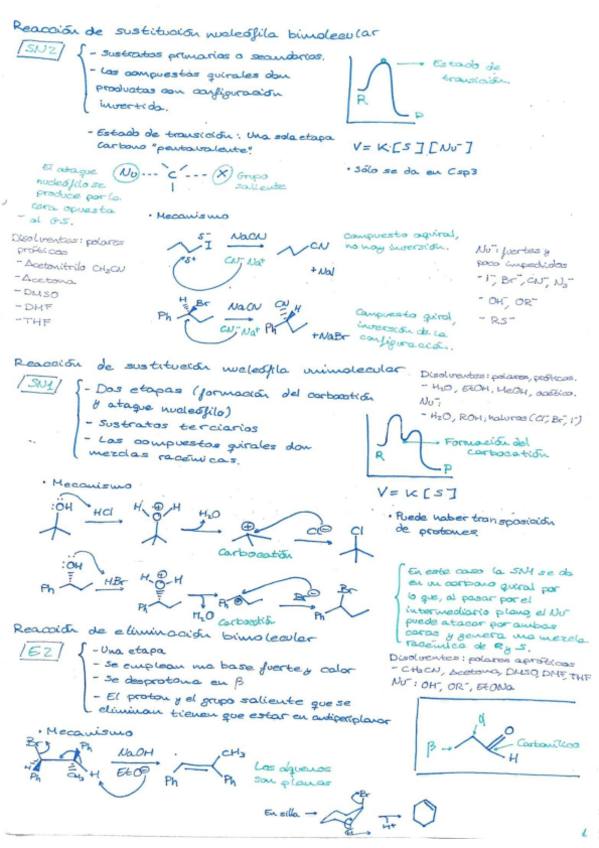 Reacción de sustitución nucleófila bimolecular
SN2
- Sustratos primarios o secundarios.
- Los compuestos quirales dan
productos con configuración
invertida.
Estado de
transición.
R
P
- Estado de transición: Una sola etapa
Carbono "pentavalente".
V = K·[S][Nu⁻]
• Sólo se da en Csp3
El ataque
nucleófilo se
produce por la
cara opuesta
al G.S.
Nu
C
X
Grupo
saliente
• Mecanismo
Disolventes: polares
próticos
- Acetonitrilo CH₃CN
- Acetona
- DMSO
- DMF
- THF
δ⁻
I
δ⁺
NaCN
CN⁻Na⁺
CN
+ NaI
Compuesto aquiral,
no hay inversión.
Nu⁻: fuertes y
poco impedidos
- I⁻, Br⁻, CN⁻, N₃⁻
- OH⁻, OR⁻
- RS⁻
H
Br
Ph
NaCN
CN⁻Na⁺
CN
H
Ph
+ NaBr
Compuesto quiral,
inversión de la
configuración.
Reacción de sustitución nucleófila unimolecular
SN1
- Dos etapas (formación del carbocatión
y ataque nucleófilo)
- Sustratos terciarios
- Los compuestos quirales dan
mezclas racémicas.
Disolventes: polares, próticos.
- H₂O, EtOH, MeOH, acético.
Nu⁻:
- H₂O, ROH, haluros (Cl⁻, Br⁻, I⁻)
R
P
Formación del
carbocatión
V = K[S]
• Mecanismo
ÖH
HCl
H
O
H
H₂O
Carbocatión
Cl⁻
Cl
• Puede haber transposición
de protones.
ÖH
Ph
HBr
H
O
H
Ph
H₂O
Ph
Carbocatión
Br⁻
Br
Ph
En este caso la SN1 se da
en un carbono quiral por
lo que, al pasar por el
intermediario plano, el Nu⁻
puede atacar por ambas
caras y genera una mezcla
racémica de R y S.
Reacción de eliminación bimolecular
E2
- Una etapa
- Se emplean una base fuerte y calor
- Se desprotona en β
- El proton y el grupo saliente que se
eliminan tienen que estar en antiperiplanar
Disolventes: polares apróticos
- CH₃CN, Acetona, DMSO, DMF, THF
Nu⁻: OH⁻, OR⁻, EtONa
α
β
O
H
Carbonílico
• Mecanismo
Br
Ph
H
Ph
CH₃
H
NaOH
EtO⁻
CH₃
Ph
Ph
Los alquenos
son planos
En silla
Br
H
H⁺
1